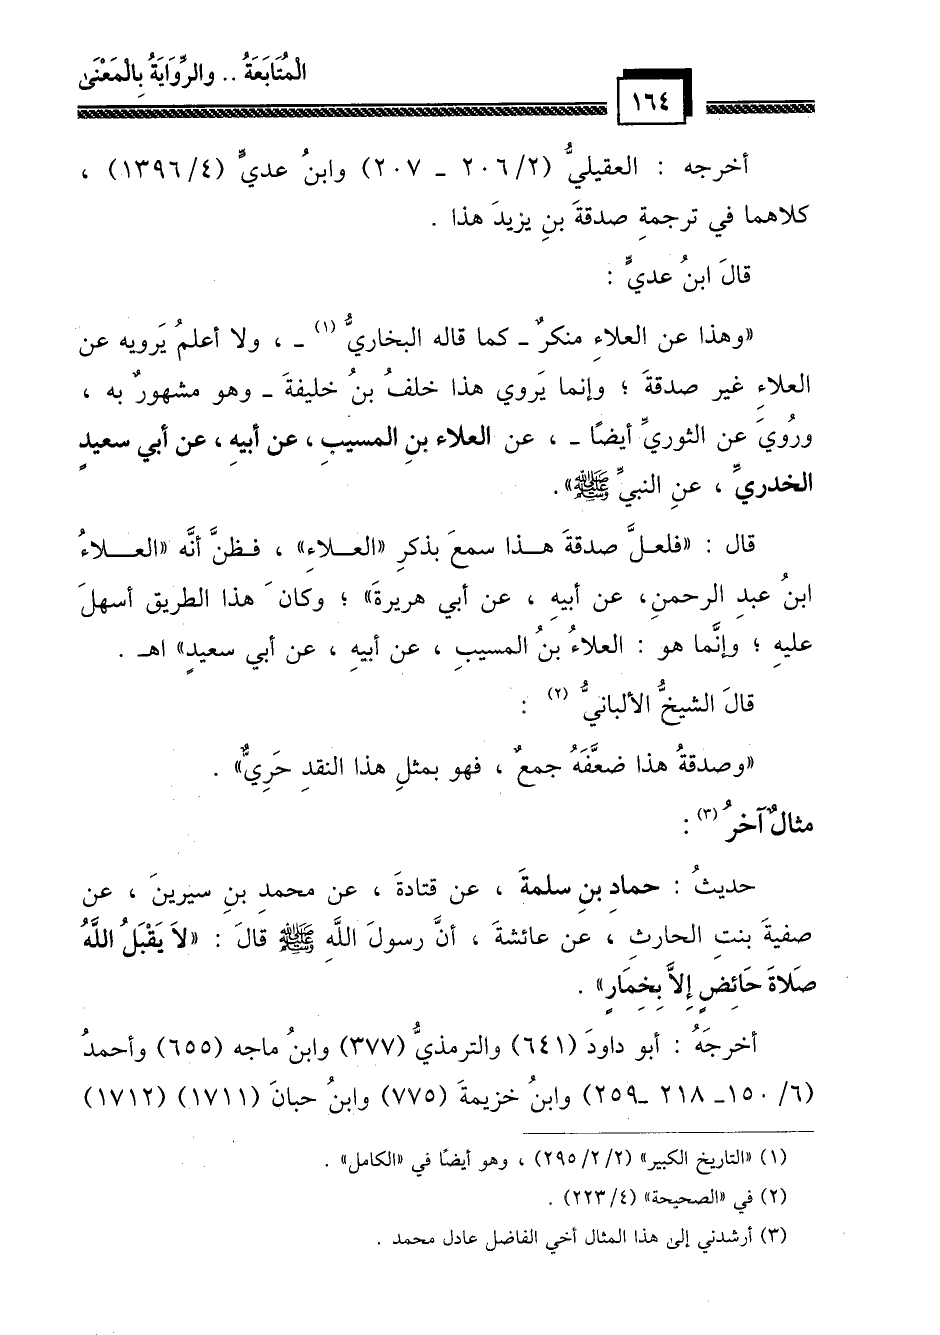 المُتَابَعَةُ .. والرِّوَايَةُ بِالْمَعْنَى
١٦٤
أخرجه : العقيليُّ (٢/ ٢٠٦ ـ ٢٠٧) وابنُ عديٍّ (٤/ ١٣٩٦) ،
كلاهما في ترجمةِ صدقةَ بنِ يزيدَ هذا .
قالَ ابنُ عديٍّ :
«وهذا عن العلاءِ منكرٌ ـ كما قاله البخاريُّ (١) ـ ، ولا أعلمُ يَرويه عن
العلاءِ غير صدقةَ ؛ وإنما يَروي هذا خلفُ بنُ خليفةَ ـ وهو مشهورٌ به ،
ورُويَ عن الثوريِّ أيضًا ـ ، عن العلاء بنِ المسيبِ ، عن أبيهِ ، عن أبي سعيدٍ
الخدريِّ ، عنِ النبيِّ ﷺ».
قال : «فلعلَّ صدقةَ هذا سمعَ بذكرِ «العلاءِ» ، فظنَّ أنَّه «العلاءُ
ابنُ عبدِ الرحمنِ، عن أبيهِ ، عن أبي هريرةَ» ؛ وكانَ هذا الطريق أسهلَ
عليهِ ؛ وإنَّما هو : العلاءُ بنُ المسيبِ ، عن أبيهِ ، عن أبي سعيدٍ» اهـ .
قالَ الشيخُ الألبانيُّ (٢) :
«وصدقةُ هذا ضعَّفَهُ جمعٌ ، فهو بمثلِ هذا النقدِ حَرِيٌّ» .
مثالٌ آخرُ (٣) :
حديثُ : حمادِ بنِ سلمةَ ، عن قتادةَ ، عن محمدِ بنِ سيرينَ ، عن
صفيةَ بنتِ الحارثِ ، عن عائشةَ ، أنَّ رسولَ اللَّهِ ﷺ قالَ : «لاَ يَقْبَلُ اللَّهُ
صَلاةَ حَائِضٍ إِلاَّ بِخِمَارٍ» .
أخرجَهُ : أبو داودَ (٦٤١) والترمذيُّ (٣٧٧) وابنُ ماجه (٦٥٥) وأحمدُ
(٦/ ١٥٠ـ ٢١٨ ـ٢٥٩) وابنُ خزيمةَ (٧٧٥) وابنُ حبانَ (١٧١١) (١٧١٢)
(١) «التاريخ الكبير» (٢/ ٢/ ٢٩٥) ، وهو أيضًا في «الكامل» .
(٢) في «الصحيحة» (٤/ ٢٢٣) .
(٣) أرشدني إلى هذا المثال أخي الفاضل عادل محمد .